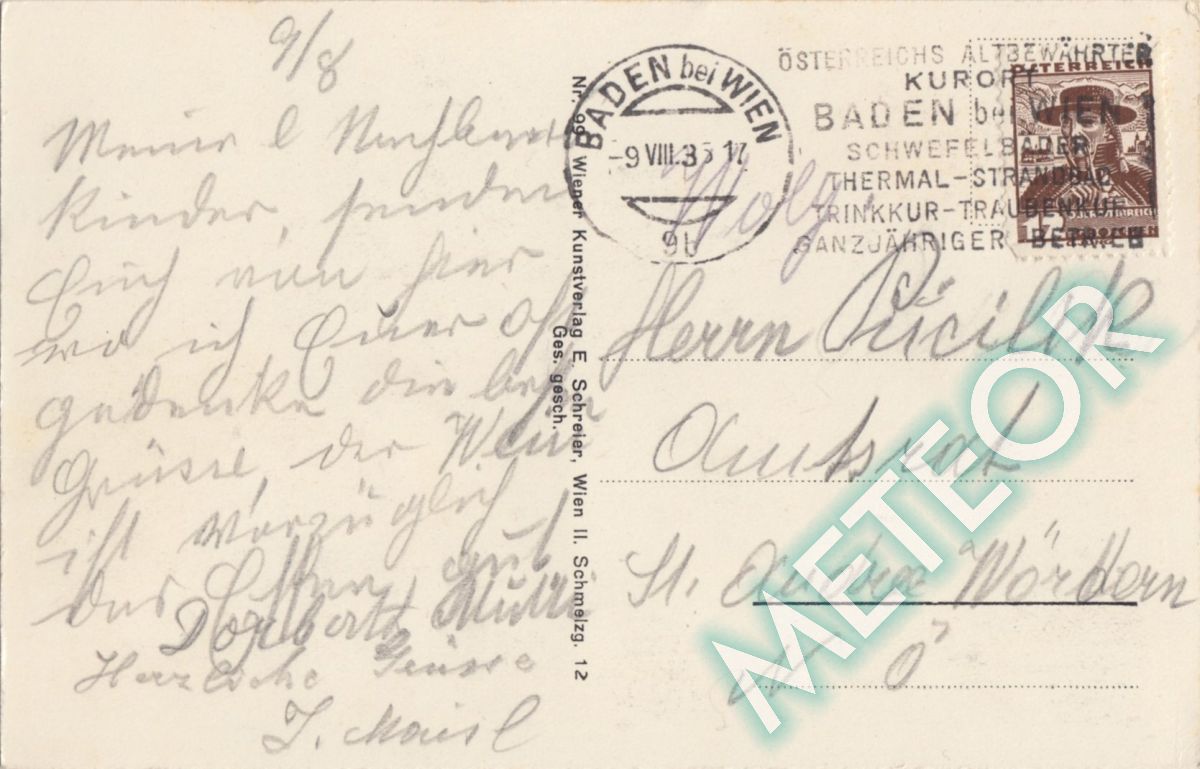 9/8
Meine l Nachbars
kinder, senden
Euch von hier
wo ich Euer oft
gedenke die besten
Grüsse, der Wein
ist vorzüglich
das Essen gut
Herzliche Grüsse
Nr. 99 Wiener Kunstverlag E. Schreier, Wien II. Schmelzg. 12
Ges. gesch.
BADEN bei WIEN
-9 VIII.35 17
9b
ÖSTERREICHS ALTBEWÄHRTER
KURORT
BADEN bei WIEN
SCHWEFELBÄDER
THERMAL-STRANDBAD
TRINKKUR-TRAUBENKUR
GANZJÄHRIGER BETRIEB
ÖSTERREICH
12
Herrn
Amtsrat
St. Andrä Wördern
N Ö
METEOR